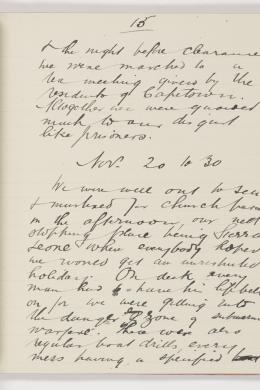 15
& the night before clearance
we were marched to a
tea meeting given by the
residents of Capetown.
Altogether we were guarded
much to our disgust
like prisoners.
Nov. 20 to 30
We were well out to sea
& mustered for church parade
in the afternoon, our next
stopping place being Sierra
Leone & when everybody hoped
we would get an unrestricted
holiday. On deck every
man had to have his lifebelt
on for we were getting into
the danger zone of submarine
warfare. There were also
regular boat drills every
mess having a specified boat